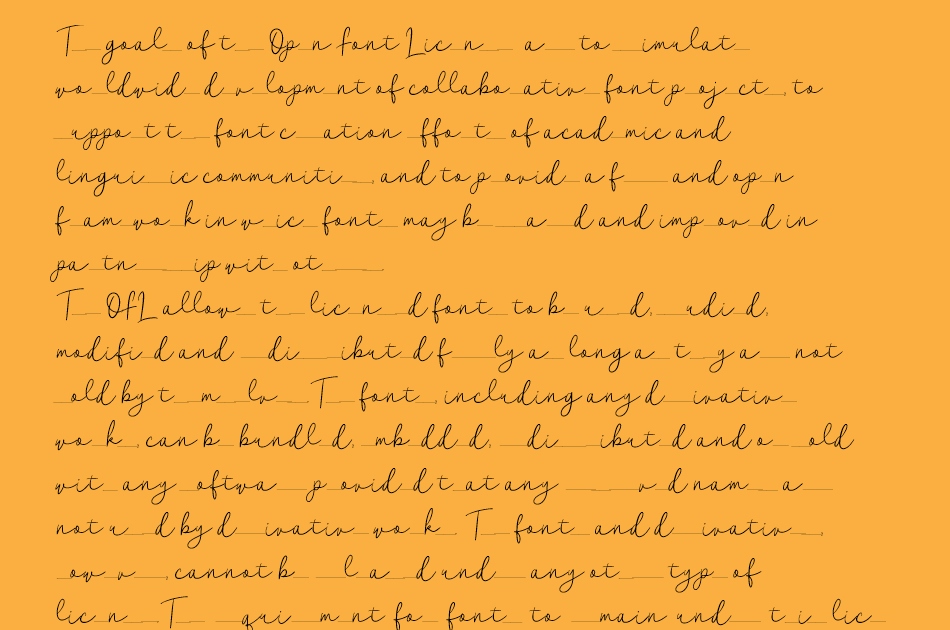 T goal of t Op n Font Lic n a to imulat
wo ldwid d v lopm nt of collabo ativ font p oj ct , to
uppo t t font c ation ffo t of acad mic and
lingui ic communiti , and to p ovid a f and op n
f am wo k in w ic font may b a d and imp ov d in
pa tn ip wit ot
T OFL allow t lic n d font to b u d, udi d,
modifi d and di ibut d f ly a long a t y a not
old by t m lv T font , including any d ivativ
wo k , can b bundl d, mb dd d, di ibut d and o old
wit any oftwa p ovid d t at any v d nam a
not u d by d ivativ wo k T font and d ivativ ,
ow v , cannot b l a d und any ot typ of
lic n T qui m nt fo font to main und t i lic